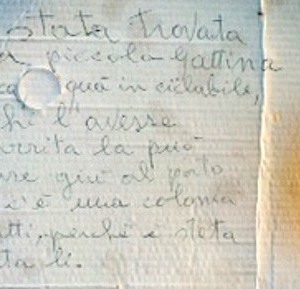 stata trovata
piccola gattina
quà in ciclabile,
l'avesse
la può
giù al porto
c'è una colonia
perchè è stata
lì.